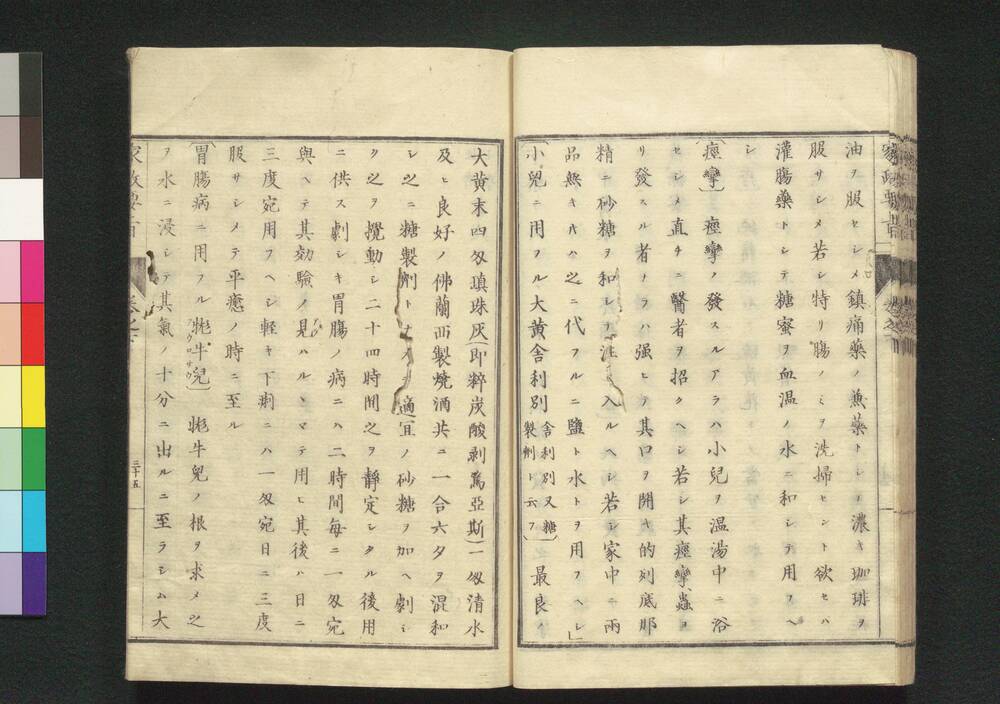 油ヲ服セシメ鎮痛藥ノ兼藥トシテ濃キ珈琲ヲ
服サシメ若シ特リ腸ノミヲ洗掃セント欲セハ
灌腸藥トシテ糖蜜ヲ血温ノ水ニ和シテ用フヘ
シ
〔痙攣〕 痙攣ノ發スルアラハ小兒ヲ温湯中ニ浴
セシメ直チニ醫者ヲ招クヘシ若シ其痙攣、蟲ヨ
リ發スル者ノラハ强ヒテ其口ヲ開キ的列底那
精ニ砂糖ヲ和シテ注入ルヘシ若シ家中ニ兩
品無キトキハ之ニ代フルニ鹽ト水トヲ用フヘシ」
〔小兒ニ用フル大黄舎利別 舎利別又糖製劑ト云フ〕 最良ノ
大黄末四匁瑱珠灰(即粹炭酸剥篤亞斯)一匁清水
及ヒ良好ノ佛蘭西製燒酒共ニ一合六夕ヲ混和
シ之ニ糖製劑トナス適宜ノ砂糖ヲ加ヘ劇シ
ク之ヲ攪動シ二十四時間之ヲ静定シタル後用
ニ供ス劇シキ胃腸ノ病ニハ二時間毎ニ一匁宛
與ヘテ其効驗ノ見ハルヽマテ用ヒ其後ハ日ニ
三度宛用フヘシ軽キ下痢ニハ一匁宛日ニ三度
服サシメテ平癒ノ時ニ至ル
〔胃腸病ニ用フル牻牛兒〕 牻牛兒ノ根ヲ求メ之
ヲ水ニ浸シテ其氣 十分ニ出ルニ至ラシム大
三十五